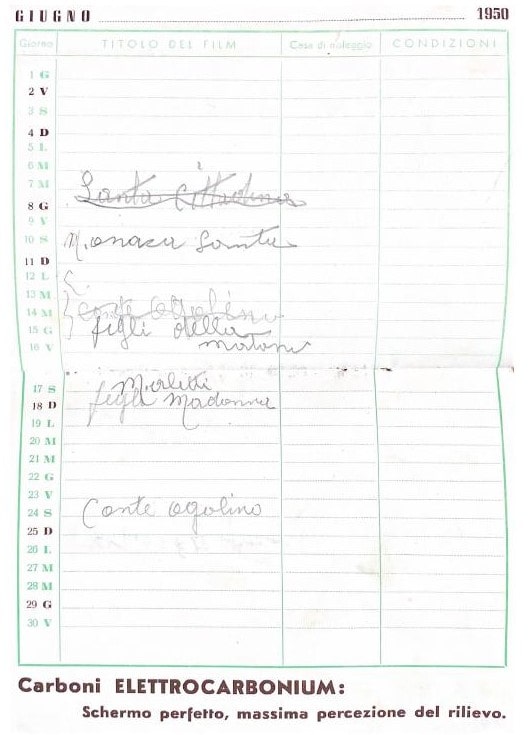 GIUGNO 1950
Giorno TITOLO DEL FILM Casa di noleggio CONDIZIONI
1 G
2 V
3 S
4 D
5 L
6 M
7 M
Santa Cittadina
8 G
9 V
10 S Monaca Santa
11 D
12 L
13 M
14 M Conte Ogolino
15 G figli della
16 V
17 S
18 D figli Madonna
19 L
20 M
21 M
22 G
23 V
24 S Conte Ogolino
25 D
26 L
27 M
28 M
29 G
30 V
Carboni ELETTROCARBONIUM:
Schermo perfetto, massima percezione del rilievo.